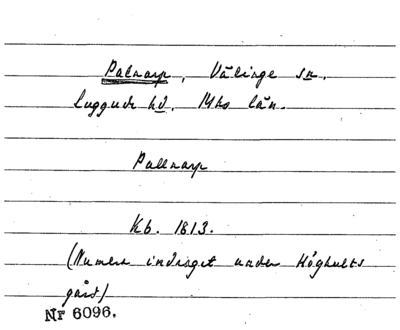 Palnarp, Välinge sn.
Luggude hd. Mhs län.
Pallnarp
Kb. 1813.
(Numera indraget under Höghults
gård)
Nr 6096.